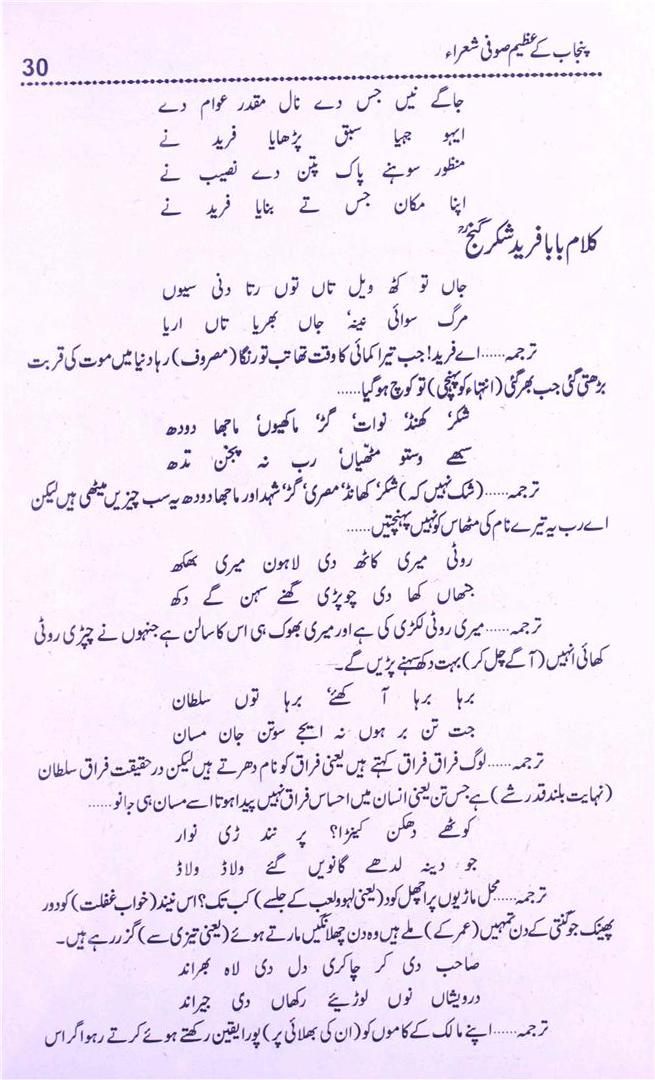 پنجاب کے عظیم صوفی شعراء
30
جاگے نیں جس دے نال مقدر عوام دے
ایہو جہیا سبق پڑھایا فرید نے
منظور سوہنے پاک پتن دے نصیب نے
اپنا مکان جس تے بنایا فرید نے
کلام بابا فرید شکر گنجؒ
جاں تو کٹھ ویل تاں توں رتا دنی سیوں
مرگ سوائی نینہ‘ جاں بھریا تاں اریا
ترجمہ......اے فرید! جب تیرا کمائی کا وقت تھا تب تو رنگا (مصروف) رہا دنیا میں موت کی قربت
بڑھتی گئی جب بھر گئی (انتہاء کو پہنچی) تو کوچ ہو گیا......
شکر‘ کھنڈ‘ نوات‘ گڑ‘ ماکھیوں‘ ماجھا دودھ
سبھے وستو مٹھیاں‘ رب نہ پجن تدھ
ترجمہ......(شک نہیں کہ) شکر‘ کھانڈ‘ مصری‘ گڑ‘ شہد اور ماجھا دودھ یہ سب چیزیں میٹھی ہیں لیکن
اے رب یہ تیرے نام کی مٹھاس کو نہیں پہنچتیں......
روٹی میری کاٹھ دی لاہون میری بھکھ
جنھاں کھا دی چوپڑی گھنے سہن گے دکھ
ترجمہ......میری روٹی لکڑی کی ہے اور میری بھوک ہی اس کا سالن ہے جنہوں نے چپڑی روٹی
کھائی انہیں (آگے چل کر) بہت دکھ سہنے پڑیں گے۔
برہا برہا آ کھئے‘ برہا توں سلطان
جت تن بر ہوں نہ ایجے سوتن جان مسان
ترجمہ......لوگ فراق فراق کہتے ہیں یعنی فراق کو نام دھرتے ہیں لیکن در حقیقت فراق سلطان
(نہایت بلند قدر شے) ہے جس تن یعنی انسان میں احساس فراق نہیں پیدا ہوتا اسے مسان ہی جانو......
کوٹھے دھکن کینڑا؟ پر نند ڑی نوار
جو دینہ لدھے گانویں گئے ولاڈ ولاڈ
ترجمہ......محل ماڑیوں پر اچھل کود (یعنی لہو و لعب کے جلسے) کب تک؟ اس نیند (خواب غفلت) کو دور
پھینک جو گنتی کے دن تمہیں (عمر کے) ملے ہیں وہ دن چھلانگیں مارتے ہوئے (یعنی تیزی سے) گزر رہے ہیں۔
صاحب دی کر چاکری دل دی لاہ بھراند
درویشاں نوں لوڑیئے رکھاں دی جیراند
ترجمہ......اپنے مالک کے کاموں کو (ان کی بھلائی پر) پورا یقین رکھتے ہوئے کرتے رہو اگر اس